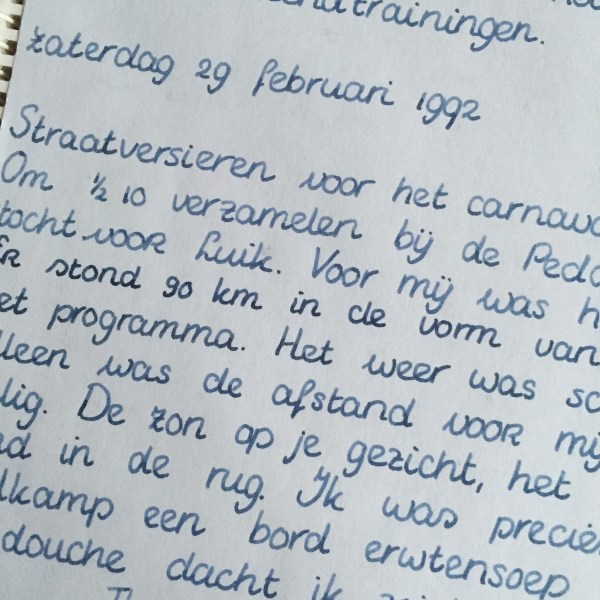 trainingen.
zaterdag 29 februari 1992
Straatversieren voor het carnava
Om ½ 10 verzamelen bij de Peda
tocht voor Luik. Voor mij was h
Er stond 90 km in de vorm van
et programma. Het weer was sc
lleen was de afstand voor mij
lig. De zon op je gezicht, het
nd in de rug. Ik was precie
lkamp een bord erwtensoep
douche dacht ik